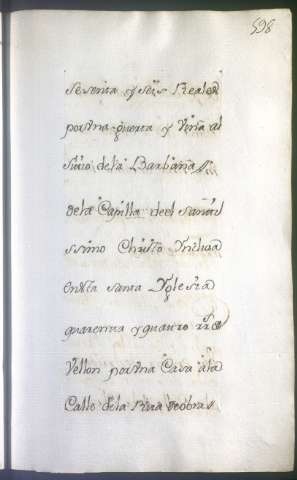 598
Sesenta y seis Reales
por una Huerta y Viña al
sitio de la Barbiana //.
de la Capilla deel Santis
ssimo Christo Yncluia
en esta santa Yglesia
quarenta y quatro rrs
Vellon por una Casa à la
Calle de la Riza de obras